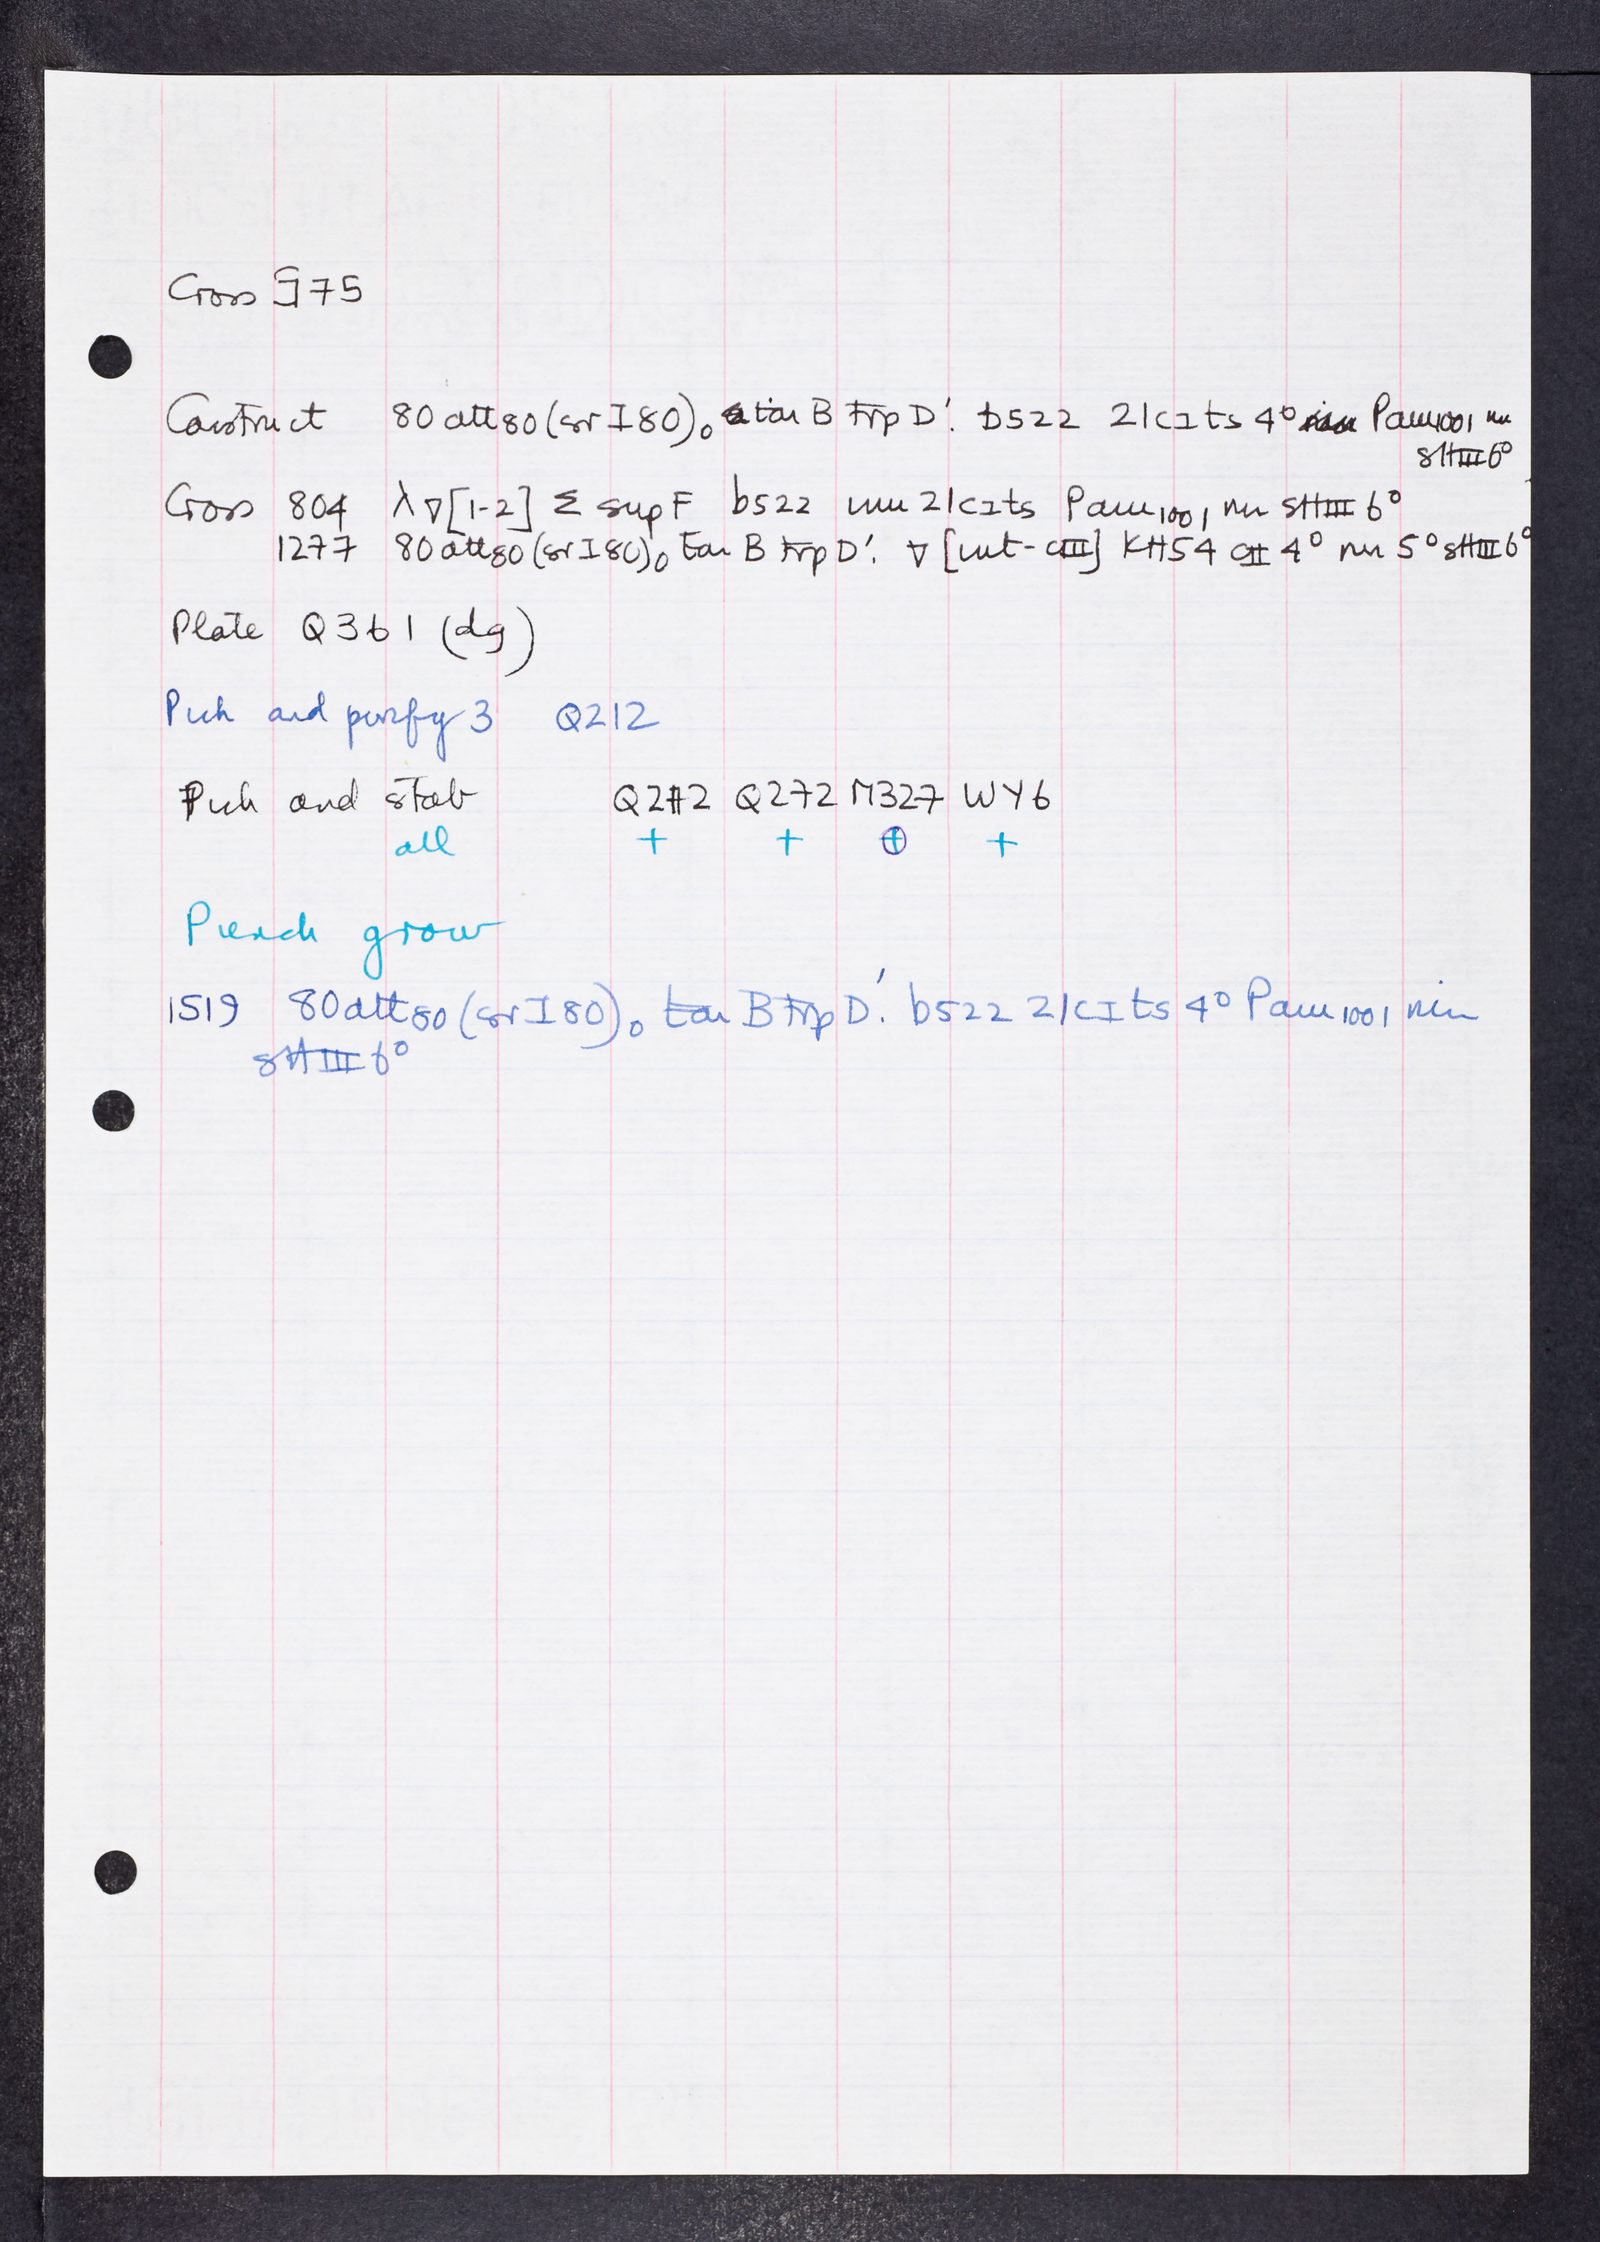 Cross G75
Construct 80 att80 (sr I 80)o ton B trp D'. b522 21 cI ts 4° Pam1001 nin
sHIII 6°
Cross 804 λ∇[1-2] Σ supF b522 imm 21 cI ts Pam1001 nin sHIII 6°
1277 80 att80 (sr I 80)o ton B trp D'. ∇ [int-cIII] KH54 cII 4° nin 5° sHIII 6°
Plate Q361 (dg)
Pick and purify 3 Q212
Pick and stab Q212 Q272 M327 WY6
all + + + +
Pick grow
1519 80 att80 (sr I 80)o ton B trp D'. b522 21 cI ts 4° Pam1001 nin
sHIII 6°